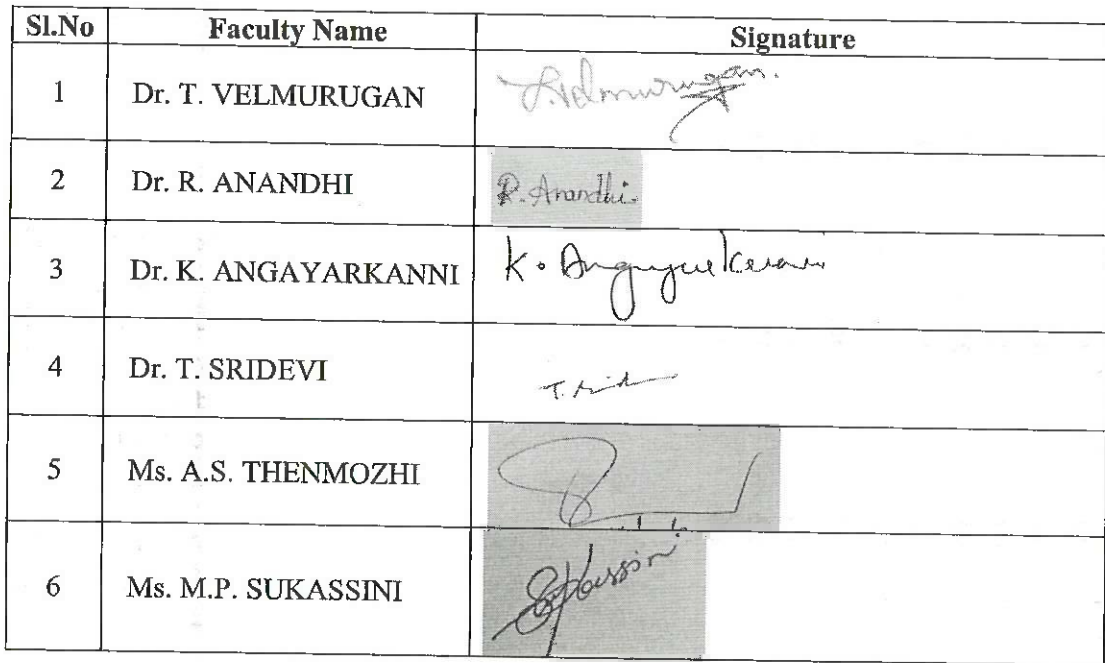 Sl.No Faculty Name Signature
1 Dr. T. VELMURUGAN T.Velmurugan.
2 Dr. R. ANANDHI R. Anandhi.
3 Dr. K. ANGAYARKANNI K. Angayarkanni
4 Dr. T. SRIDEVI T.
5 Ms. A.S. THENMOZHI
6 Ms. M.P. SUKASSINI